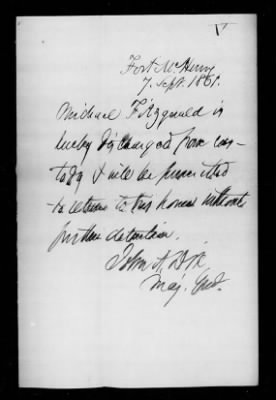 V
Fort McHenry
7. Sept. 1861.
Michael Fitzgerald is
hereby discharged from cus-
tody & will be permitted
to return to his home without
further detention.
John A. Dix
Maj. Genl.